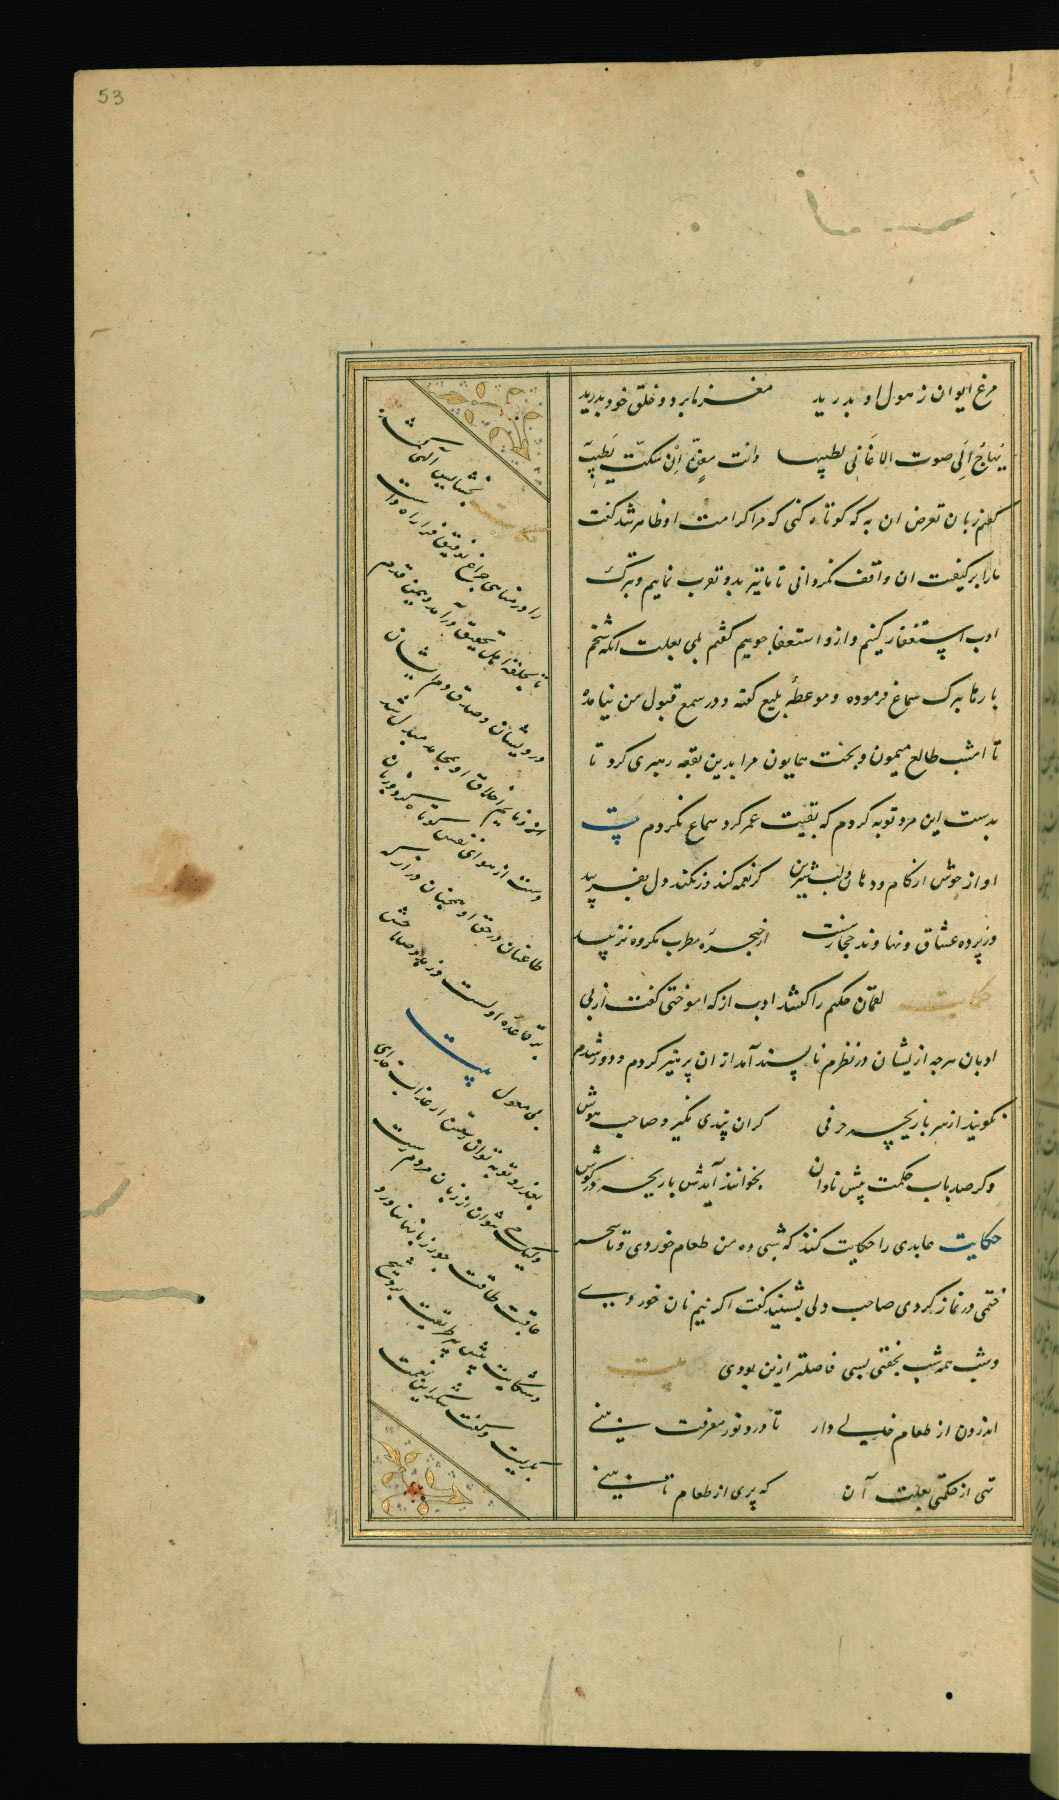 53
مرغ ایوان ز هول او بدرید مغز ما برد و حلق خود بدرید
یُهاجُ اِلَی صوت الاغانی لطیبها وانت مغنٍّ اِنْ سَکَتَّ یَطیب
گفتم زبان تعرض ان به که کوتاه کنی که مرا کرامت او ظاهر شد گفت
مارا بر کیفیت ان واقف نگردانی تا ما نیز بدو تقرب نماییم و بترک
ادب استغفار کنیم و ازو استعفا جوییم گفتم بلی بعلت انکه شیخم
بارها بترک سماع فرموده و موعظهٔ بلیغ گفته و در سمع قبول من نیامده
تا امشب طالع میمون و بخت همایون مرا بدین بقعه رهبری کرد تا
بدست این مرد توبه کردم که بقیت عمر گرد سماع نگردم بیت
اواز خوش از کام و دهان و لب شیرین گر نغمه کند ور نکند دل بفریبد
ور پرده عشاق و نهاوند و حجازست از حنجرهٔ مطرب مکروه نزیبد
حکایت لقمان حکیم را گفتند ادب از که اموختی گفت از بی
ادبان هرچه از یشان در نظرم ناپسند آمد از ان پرهیز کردم و دور شدم
نگویند از سر بازیچه حرفی کزان پندی نگیرد صاحب هوش
وگر صد باب حکمت پیش نادان بخوانند آیدش بازیچه در گوش
حکایت عابدی را حکایت کنند که شبی ده من طعام خوردی و تا سحر
ختمی در نماز کردی صاحب دلی بشنید گفت اگر نیم نان خوردیی
و شب همه شب بخفتی بسی فاضلتر ازین بودی بیت
اندرون از طعام خالی دار تا درو نور معرفت بینی
تهی از حکمتی بعلت آن که پری از طعام تا بینی
حکایت بخشایش آلهی گم شده
را در مناهی چراغ توفیق فرا راه داشت
تا بحلقه اهل تحقیق درآمد و بیمن قدم
درویشان و صدق دم ایشان
از ذمایم اخلاق او بحامد مبدل شد
دست از هوای نفس کوتاه کرد و زبان
طاعنان در حق او همچنان دراز که
بر قاعده اولست و زهد و صلاحش
نا معول بیت
بعذر و توبه توان رستن از عذاب خدای
ولیک می نتوان از زبان مردم رست
طاقت جور زبانها نیاورد
و شکایت پیش پیر طریقت برد شیخ
بگریست و گفت شکر این نعمت